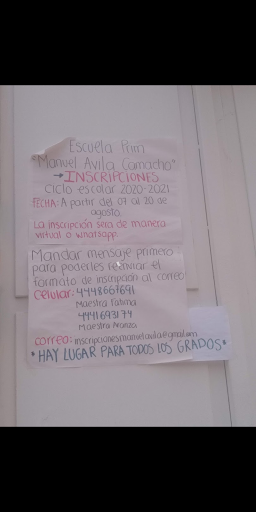 Escuela Prim
"Manuel Avila Camacho"
→INSCRIPCIONES
Ciclo escolar 2020-2021
FECHA: A partir del 07 al 20 de
agosto.
La inscripción sera de manera
virtual o whatsapp.
Mandar mensaje primero
para poderles reenviar el
formato de inscripción al correo
Celular: 4448667691
Maestra Fatima
4441693174
Maestra Aranza
correo: inscripcionesmanuelavila@gmail.com
*HAY LUGAR PARA TODOS LOS GRADOS*